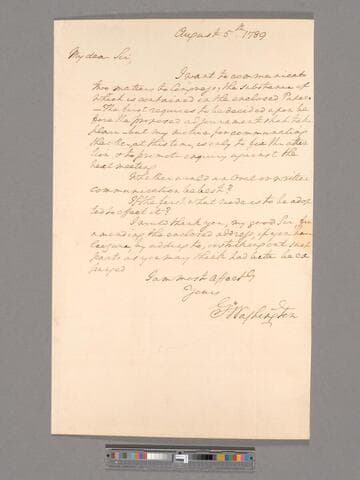 August 5th 1789
My dear Sir,
I want to communicate
two matters to Congress, the substance of
which is contained in the enclosed Paper.
– The first requires to be decided upon be
fore the proposed adjournment shall take
place but my motive for communicating
the at this time, is only to fix the atten
tion & to promote enquiry against the
next meeting.
Whether would an Oral or written
communication be best?
If the first what mode is to be adop
ted to effect it?
I would thank you, my good Sir, for
amending the enclosed address, if you have
leizure, & striking out such
parts as you may think had better be ex
punged
I am most Affectly
Yours
G. Washington